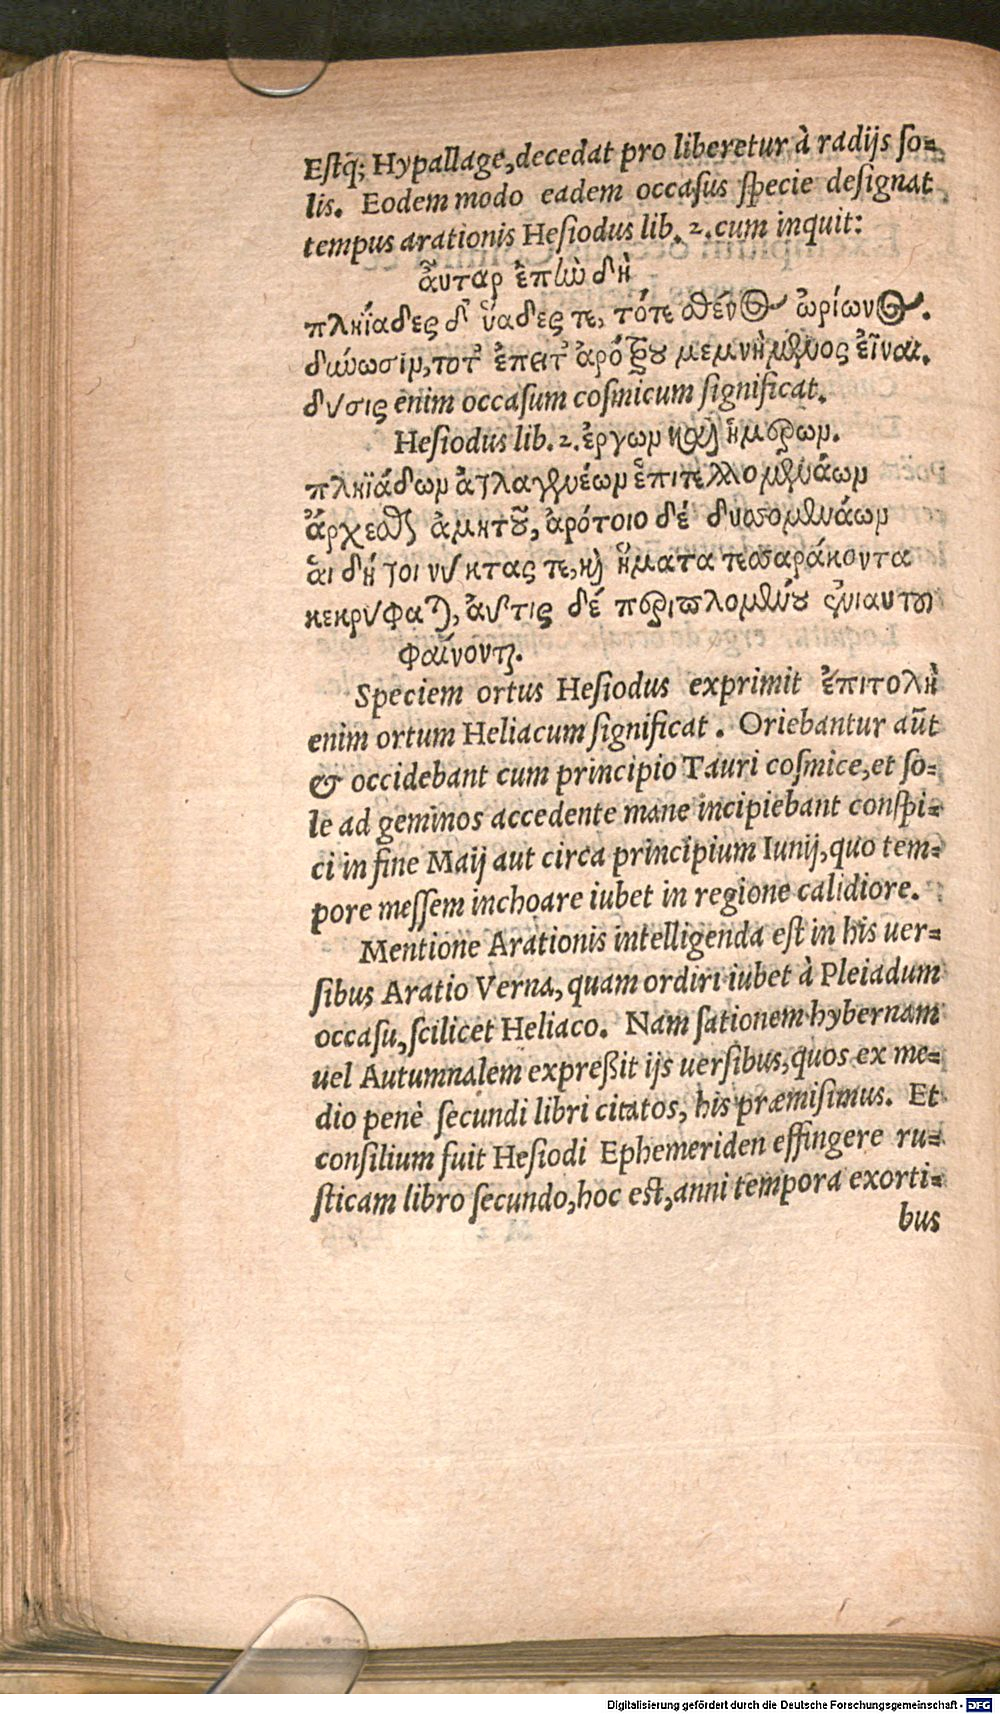 Estq́; Hypallage, decedat pro liberetur à radijs so=
lis. Eodem modo eadem occasus specie designat
tempus arationis Hesiodus lib. 2. cum inquit:
ἂυταρ ἐπὼ δὴ
πληΐαδες δ' ὕαδες τε, τότε σθένος ὠρίωνος.
δύωσιν, τοτ' ἐπειτ' ἀρότου μεμνημένος εἶναι.
δύσις enim occasum cosmicum significat.
Hesiodus lib. 2. ἐργων καὶ ἡμερων.
πληϊάδων ἀτλαγενέων ἐπιτελλομενάων
ἄρχεσθ ἀμητοῦ, ἀρότοιο δέ δυσσομενάων
ἃι δή τοι νύκτας τε, κὶ ἤματα τεσσαράκοντα
κεκρύφαται, ἀῦτις δέ περιπλομένου ἐνιαυτοῦ
φαίνονται.
Speciem ortus Hesiodus exprimit ἐπιτολὴ
enim ortum Heliacum significat. Oriebantur aūt
& occidebant cum principio Tauri cosmice, et so=
le ad geminos accedente mane incipiebant conspi=
ci in fine Maij aut circa principium Iunij, quo tem=
pore messem inchoare iubet in regione calidiore.
Mentione Arationis intelligenda est in his uer=
sibus Aratio Verna, quam ordiri iubet à Pleiadum
occasu, scilicet Heliaco. Nam sationem hybernam
uel Autumnalem expreßit ijs uersibus, quos ex me=
dio penè secundi libri citatos, his præmisimus. Et
consilium fuit Hesiodi Ephemeriden effingere ru=
sticam libro secundo, hoc est, anni tempora exorti=
bus
Digitalisierung gefördert durch die Deutsche Forschungsgemeinschaft - DFG